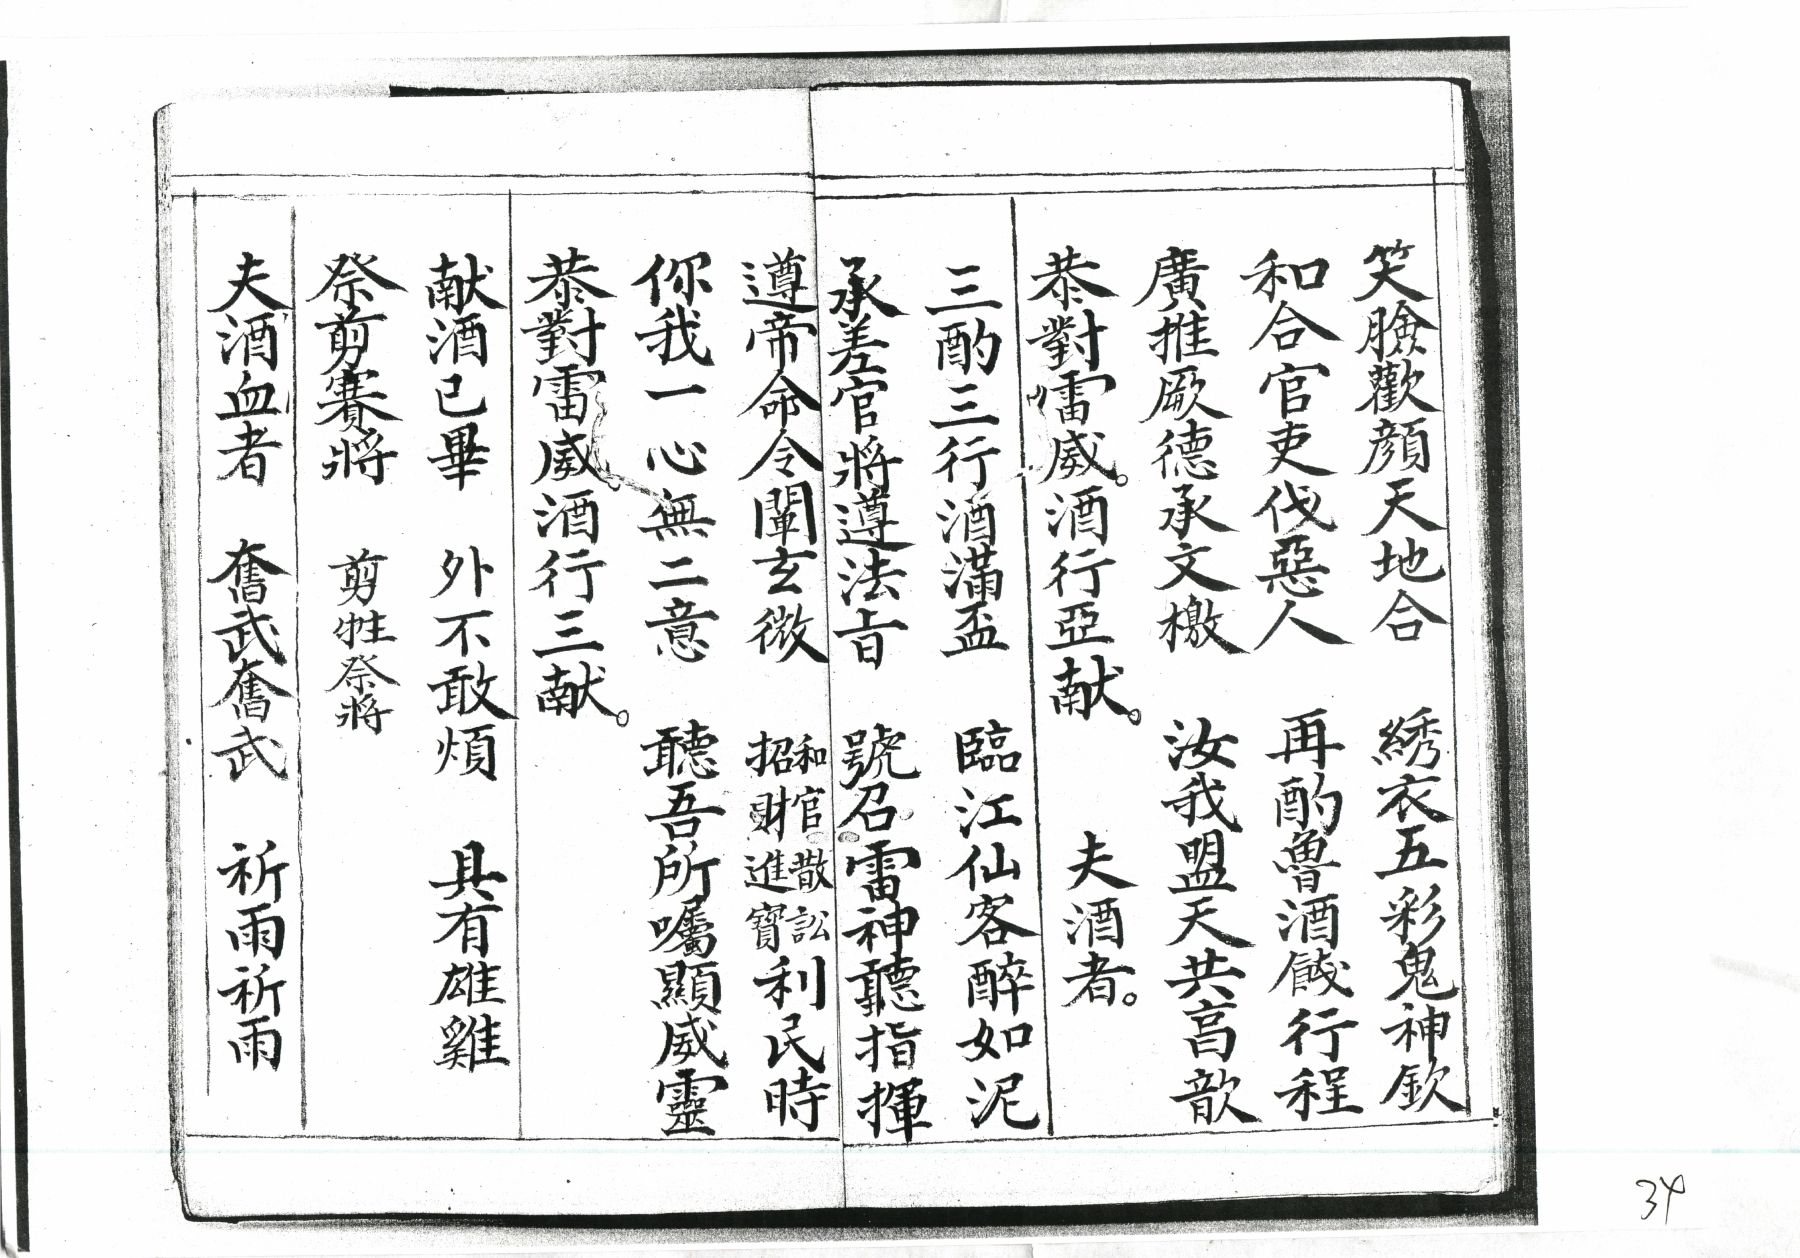 笑臉歡顏天地合　綉衣五彩鬼神欽
和合官吏伐惡人　再酌魯酒餞行程
廣推厥德承文檄　汝我盟天共高歆
恭對雷威。酒行亞献。　夫酒者。
三酌三行酒滿盃　臨江仙客醉如泥
承差官將遵法旨　號召雷神聽指揮
遵帝命令闡玄微　和官散訟招財進寶利民時
你我一心無二意　聽吾所囑顯威靈
恭對雷威。酒行三献。
献酒已畢　外不敢煩　具有雄雞
祭剪賽將　剪牲祭將
夫酒血者　奮武奮武　祈雨祈雨
34